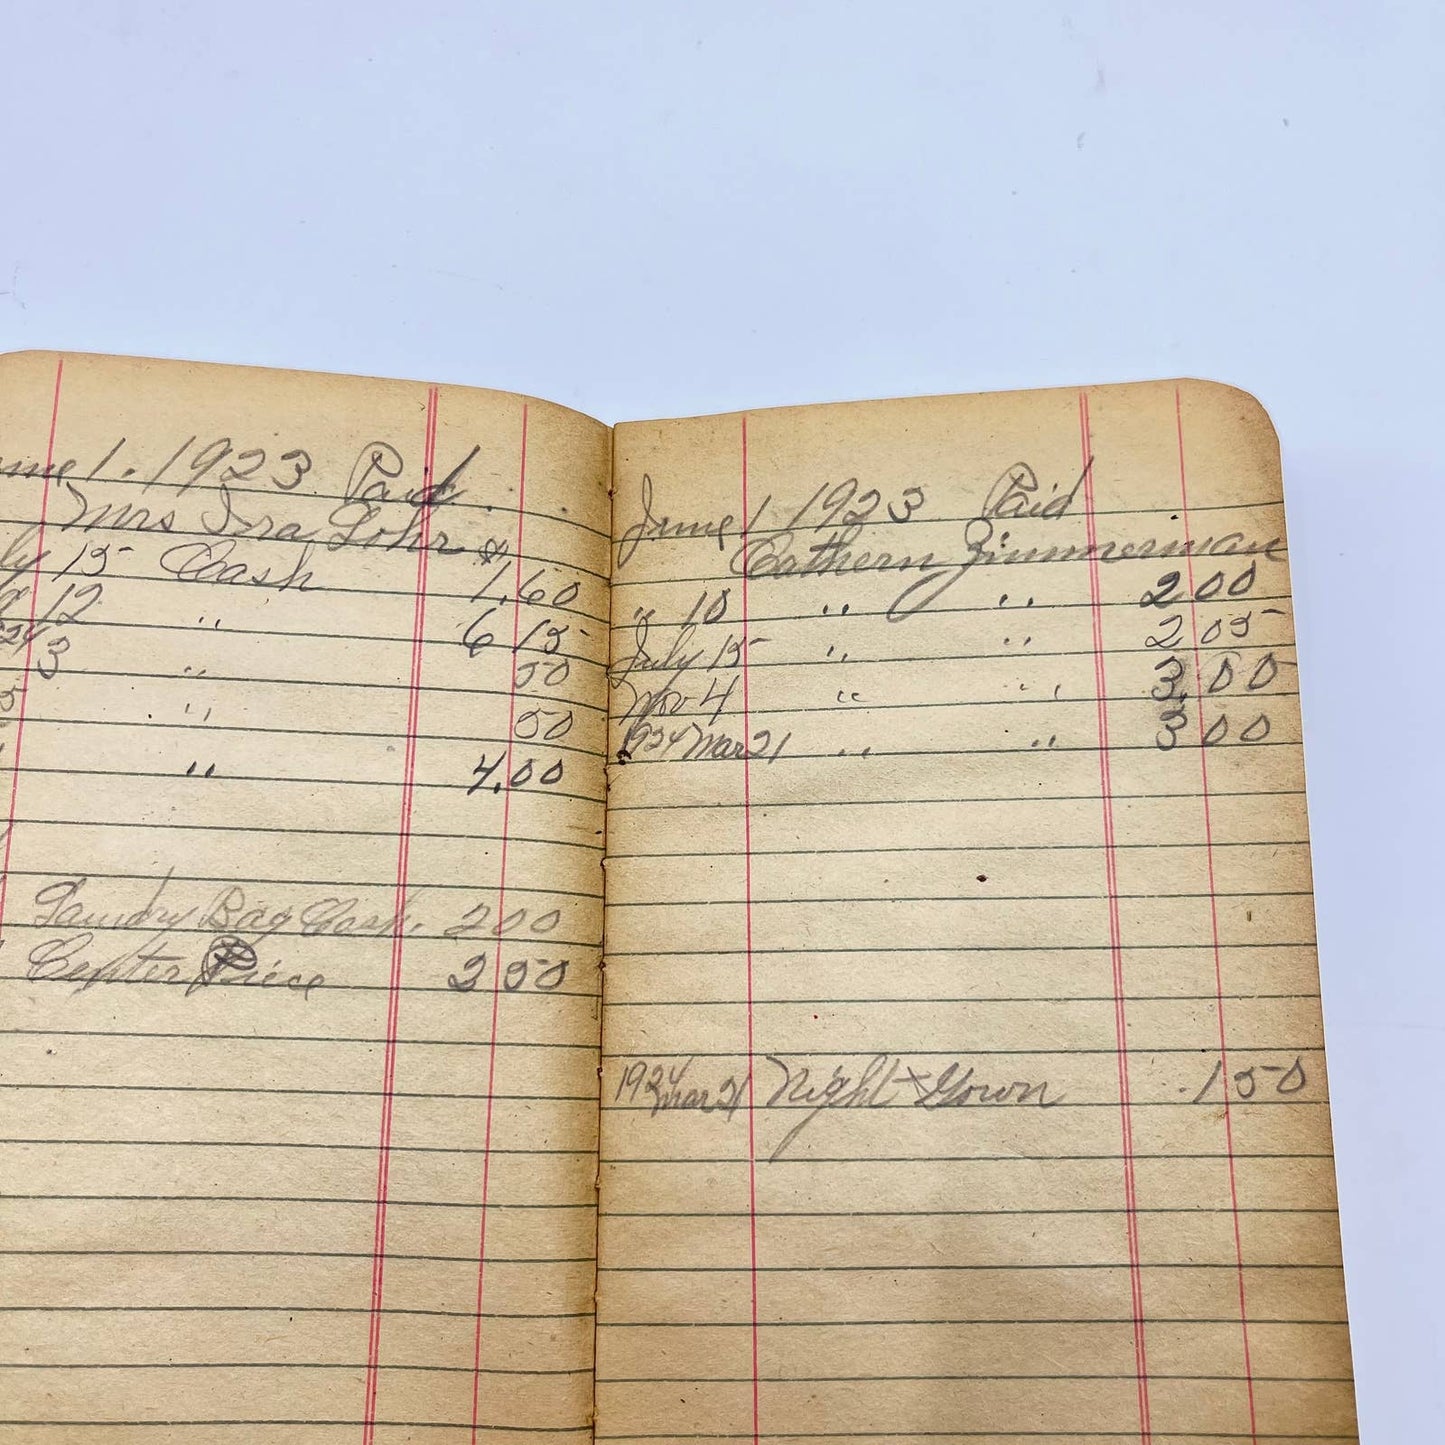 June 1. 1923 Paid
Mrs Ira Lohr $
July 15 Cash 1.60
12 " 6 15
3 " 50
" 50
" 4.00
Laundry Bag Cash. 2 00
Center Piece 2 50
June 1 1923 Paid
Cathern Zimmerman
" 10 " " 2 00
July 15 " " 2 05
Nov 4 " " 3.00
1924 Mar 21 " " 3 00
1924 Mar 21 Night Gown .1 50